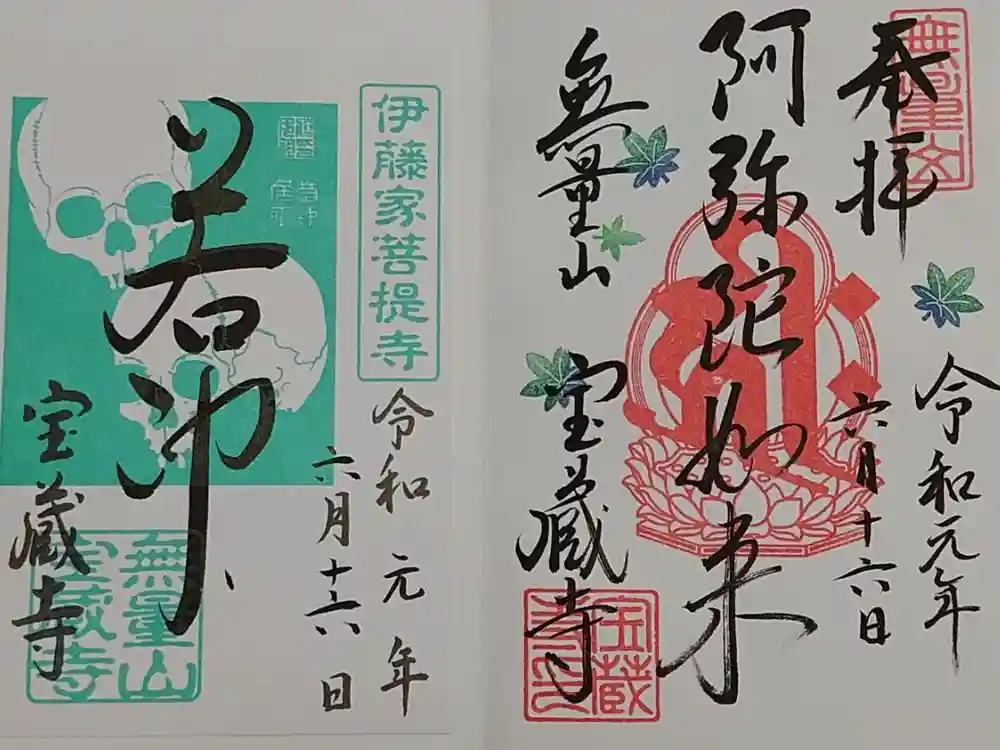 無量山
奉拝
令和元年
六月十六日
阿弥陀如来
無量山
宝蔵寺
宝蔵
寺印
伊藤家菩提寺
令和元年
六月十六日
若冲
宝蔵寺
無量山
宝蔵寺